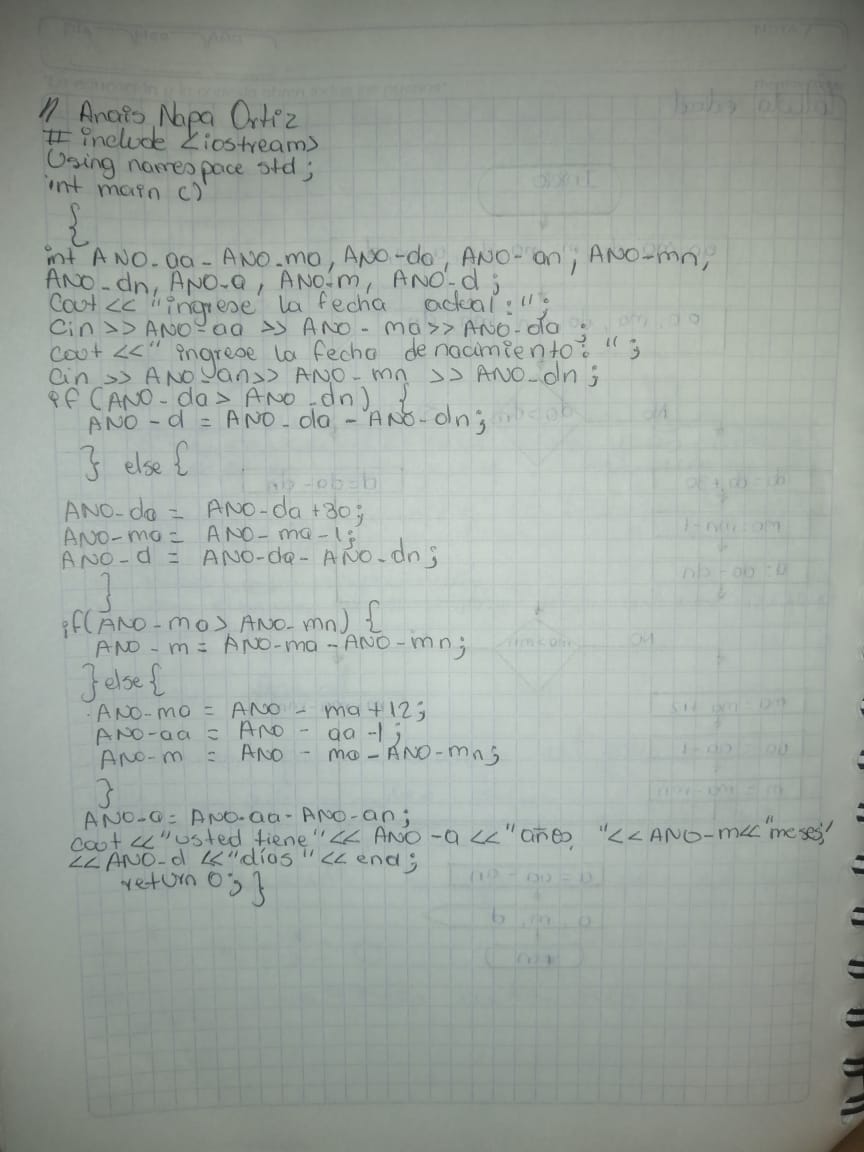 // Anais Napa Ortiz
# include <iostream>
Using namespace std;
int main ()
{
int ANO-aa - ANO-ma, ANO-da, ANO-an; ANO-mn,
ANO-dn, ANO-a, ANO-m, ANO-d;
Cout << "ingrese la fecha actual:";
Cin >> ANO-aa >> ANO - ma >> ANO-da ;
cout << " ingrese la fecha de nacimiento: ";
Cin >> ANO-an >> ANO-mn >> ANO-dn;
if (ANO-da > ANO-dn) {
ANO-d = ANO-da - ANO-dn;
} else {
ANO-da = ANO-da +30;
ANO-ma = ANO-ma -1;
ANO-d = ANO-da - ANO-dn;
}
if (ANO-ma > ANO-mn) {
ANO-m = ANO-ma - ANO-mn;
} else {
ANO-ma = ANO - ma +12;
ANO-aa = ANO - aa -1;
ANO-m = ANO - ma - ANO-mn;
}
ANO-a = ANO-aa - ANO-an;
cout << "usted tiene" << ANO-a << "años, "<< ANO-m << "meses,"
<< ANO-d << "días" << end;
return 0; }